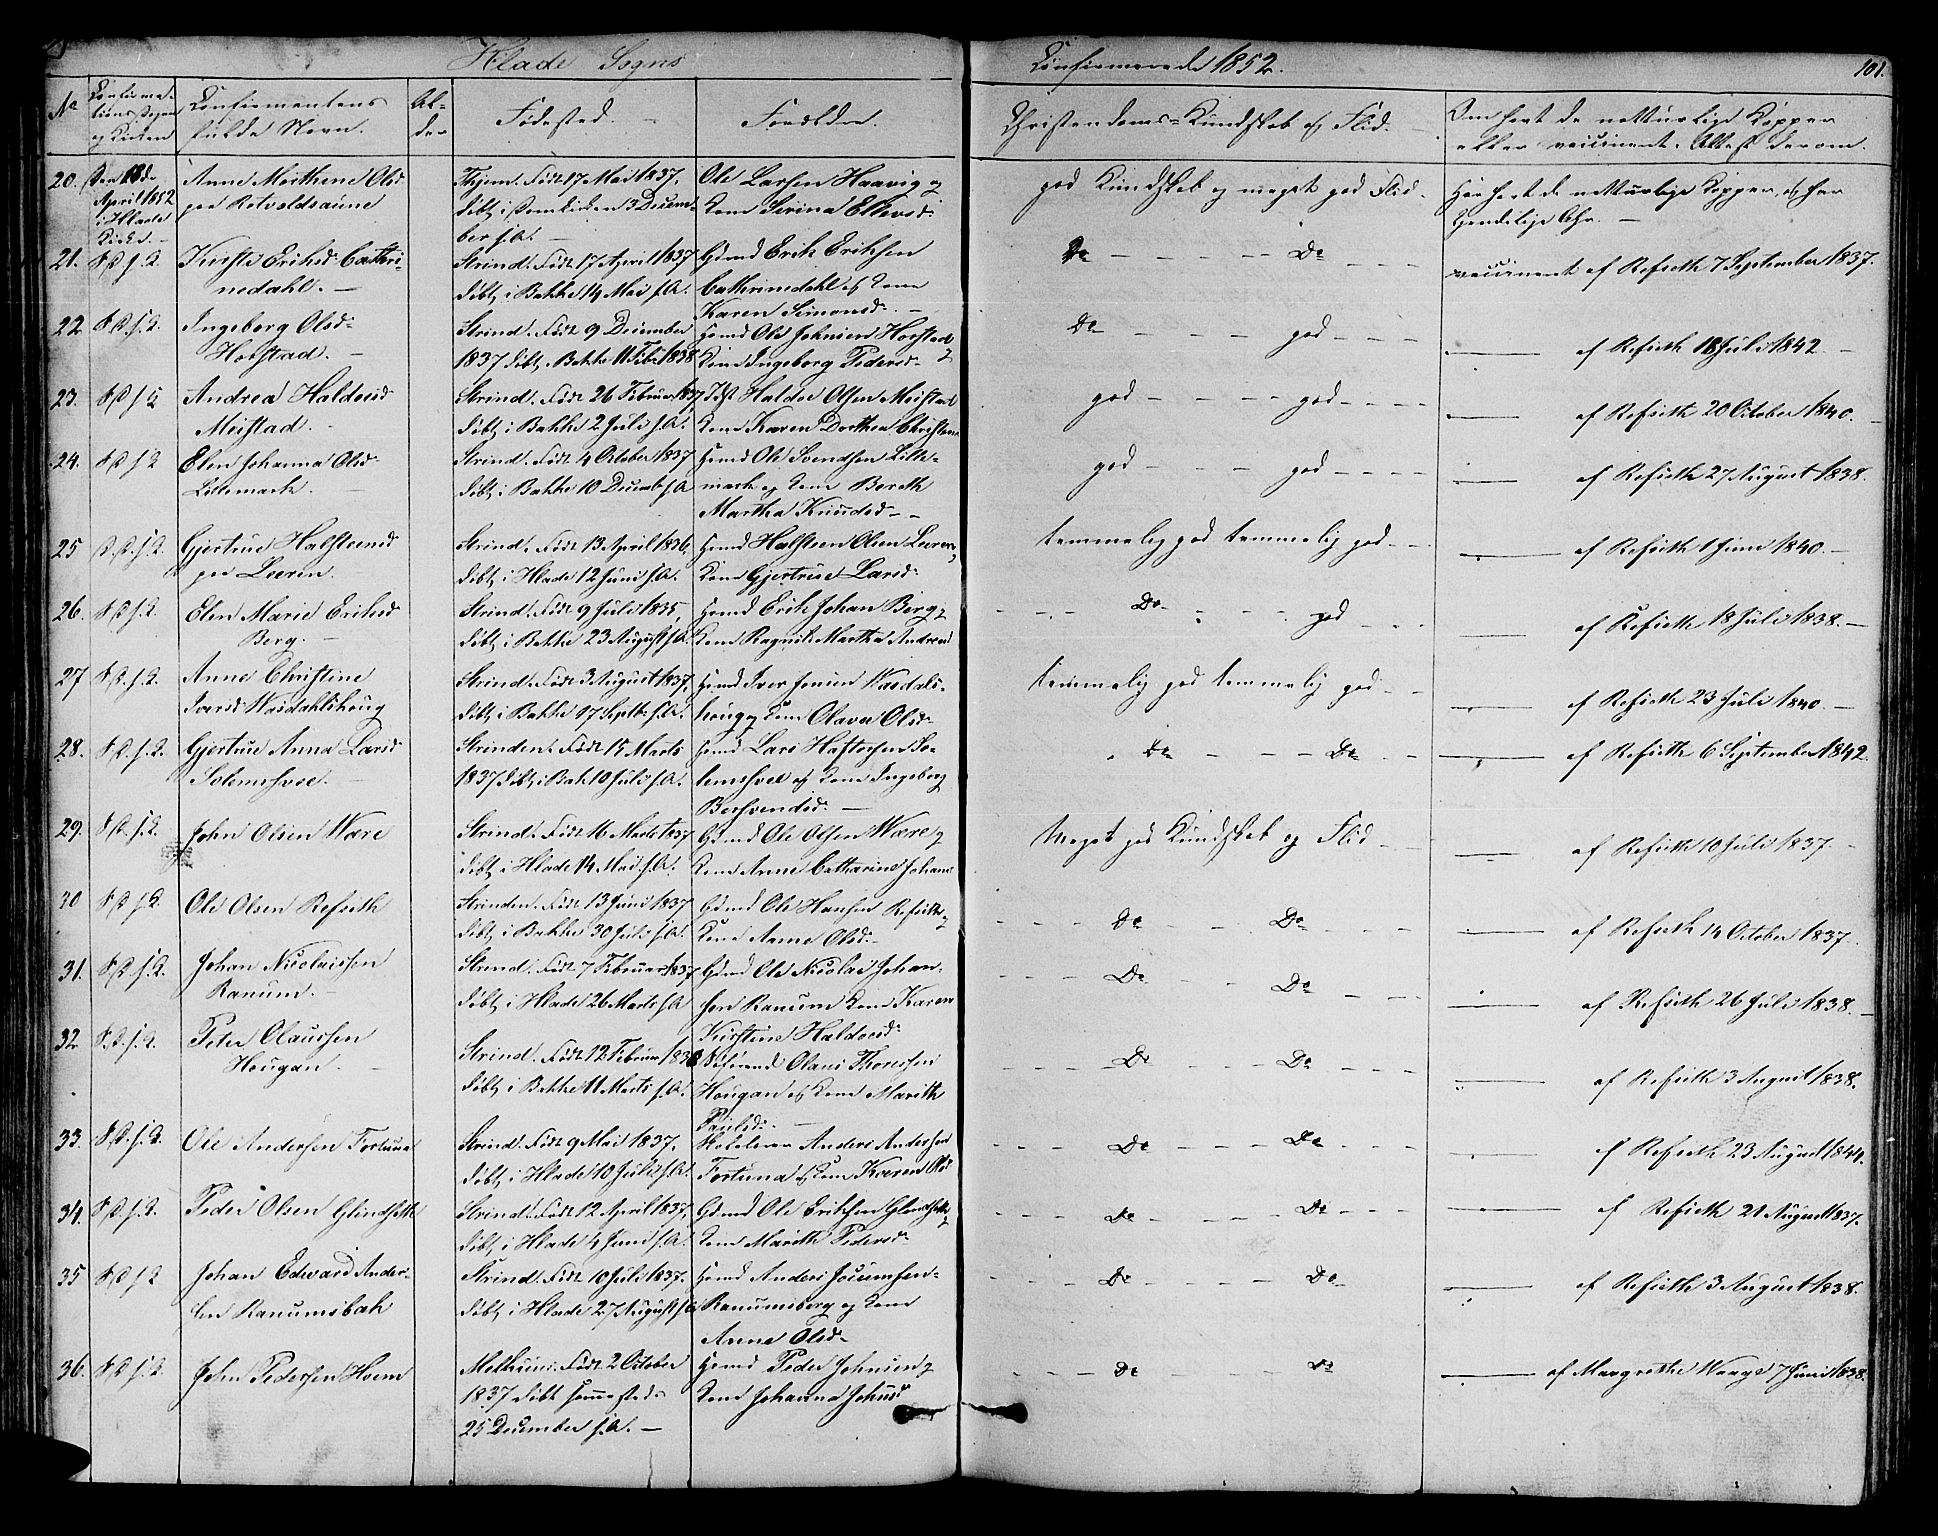 Hlade Sogns
Confirmerede 1852.
101.
No
Confirmations Dagen og Kirken
Confirmantens fulde Navn.
Alder
Fødested.
Forældre.
Christendoms-Kundskab og Flid.
Om havt de naturlige Kopper eller vaccineret. Attest derom.
20. Den 18de April 1852 i Hlade Kirke.
Anne Marthene Olsd.
paa Rotvoldsaune
Født 17 Mai 1837,
døbt i Domkirken 3 December s.A.
Ole Larsen Haavig og
Kone Serina
god Kundskab og meget god Flid.
Har havt de naturlige Kopper, og har
kjendelige Ahr.
21. S.D.s.K.
Kirsti Eriksd. Cathrinedahl.
Strind. Født 17 April 1837
døbt i Bakke 14 Mai s.A.
Gdmd Erik Eriksen
Cathrinedahl og Kone
Karen Simonsd.
Do - - - - - Do - - -
vaccineret af Refseth 7 September 1837.
22 S.D.s.K.
Ingeborg Olsd.
Hofstad.
Strind. Født 9 December
1837 døbt i Bakke 11 Febr 1838
Hsmd Ole Johnsen Hofstad
Kone Ingeborg Pedersd.
Do - - - - god - - -
af Refseth 18 Juli 1842
23. S D s K
Andrea Haldosd.
Meistad.
Strind. Født 26 Februar 1837
døbt i Bakke 2 Juli s.A.
Inst Haldo Olsen Meistad
Kone Karen Dorthea Christens
god - - - - god - - - -
af Refseth 20 October 1840.
24. S D s K
Elen Johanna Olsd.
Lillemark.
Strind. Født 4 October 1837
døbt i Bakke 10 Decemb s.A
Hsmd Ole Svendsen Lillemark og Kone Bereth
Martha Knudsd.
god - - - god - - - -
af Refseth 27 August 1838.
25 S.D.s.K.
Gjertrue Halsteensd
paa Leeren.
Strind. Født 13 April 1836,
døbt i Hlade 12 Juni s.A.
Hsmd Halsteen Olsen Leeren,
Kone Gjertrue Larsd.
temmelig god temmelig god - -
af Refseth 1 Juni 1840.
26. S.D.s.K.
Elen Marie Eriksd
Berg.
Strind. Født 9 Juli 1835,
døbt i Bakke 23 August s.A.
Hsmd Erik Johan Berg og
Kone Ragnil Martha Andersd
Do - - - god - - -
af Refseth 18 Juli 1838.
27 S.D.s.K.
Anne Christine
Iversd Wasdahlshoug
Strind. Født 3 August 1837,
døbt i Bakke 17 Septbr s.A.
Hsmd Iver Jensen Wasdalshoug og Kone Olava Olsd.
temmelig god temmelig god - -
af Refseth 23 Juli 1840.
28. S.D.s.K.
Gjertrue Anna Larsd
Solemshvee.
Strinden. Født 15 Marts
1837 døbt i Bak 10 Juli s.A.
Hsmd Lars Haftorsen Solemshvee og Kone Ingeborg
Bersvendsd.
Do - - - - Do - - -
af Refseth 6 September 1842
29. S.D.s.K.
John Olsen Være
Strind. Født 16 Marts 1837
døbt i Hlade 14 Mai s.A.
Gdmd Ole Olsen Være og
Kone Anne Catharina Johans
Meget god Kundskab og Flid - - -
af Refseth 10 Juli 1837.
30 S D s K.
Ole Olsen Refseth
Strinden. Født 13 Juni 1837
døbt i Bakke 30 Juli s.A.
Gdmd Ole Hansen Refseth og
Kone Anne Olsd.
- - - Do - - - Do - - -
af Refseth 14 October 1837.
31. S.D.s.K.
Johan Nicolaissen
Ranum.
Strind. Født 7 Februar 1837
døbt i Hlade 26 Marts s.A
Gdmd Ole Nicolai Johansen Ranum Kone Karen
Kirstine Haldosd.
- - - Do - - - Do - - -
af Refseth 26 Juli 1838.
32 S.D.s.K.
Peter Olaussen
Hougan.
Strind. Født 12 Februar 1838
døbt i Bakke 11 Marts s.A.
Olaus Thoressen
Hougan og Kone Marith
Paulsd.
- - - Do - - - Do - - -
af Refseth 3 August 1838.
33. S.D.s.K.
Ole Andersen Fortuna
Strind. Født 9 Mai 1837,
døbt i Hlade 10 Juli s.A.
Anders Andersen
Fortuna og Kone Karen Olsd
- - - Do - - - Do - - -
af Refseth 23 August 1844.
34. S.D.s.K.
Peder Olsen Glindseth
Strind. Født 12 April 1837,
døbt i Hlade 4 Juni s.A.
Gdmd Ole Eriksen Glindseth og
Kone Marith Pedersd.
- - - Do - - - Do - - -
af Refseth 21 August 1837.
35 S D s K
Johan Edvard Andersen Ranumsbak
Strind. Født 10 Juli 1837.
døbt i Hlade 27 August s.A
Hsmd Anders
Ranumsberg og Kone
Anne Olsd.
- - - Do - - - Do
af Refseth 3 August 1838.
36. S.D.s.K.
John Pedersen Hoem
Melhuus. Født 2 October
1837 døbt sammesteds
25 December s.A.
Hsmd Peder Johnsen og
Kone Johanna Johnsd
- - - Do - - - Do
af Maagrethe Waage 7 Juni 1838.